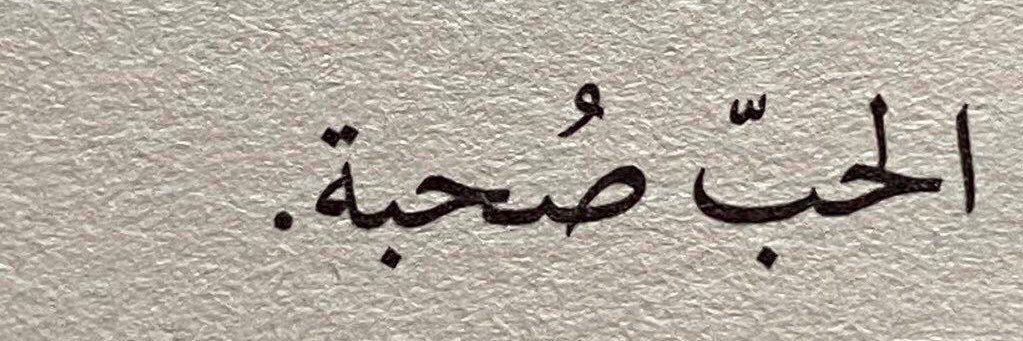 الحبّ صُحبة.